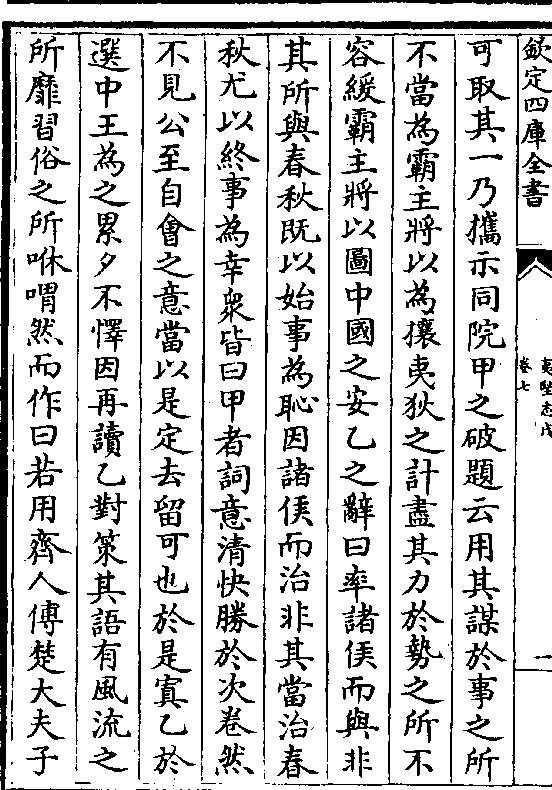 欽定四庫全書
夷堅志戊
卷七
一
可取其一乃攜示同院甲之破題云用其謀於事之所
不當為霸主將以為攘夷狄之計盡其力於勢之所不
容緩霸主將以圖中國之安乙之辭曰率諸侯而與非
其所與春秋既以始事為恥因諸侯而治非其當治春
秋尤以終事為幸衆皆曰甲者詞意清快勝於次卷然
不見公至自會之意當以是定去留可也於是寘乙於
選中王為之累夕不懌因再讀乙對策其語有風流之
所靡習俗之所咻喟然而作曰若用齊人傅楚大夫子